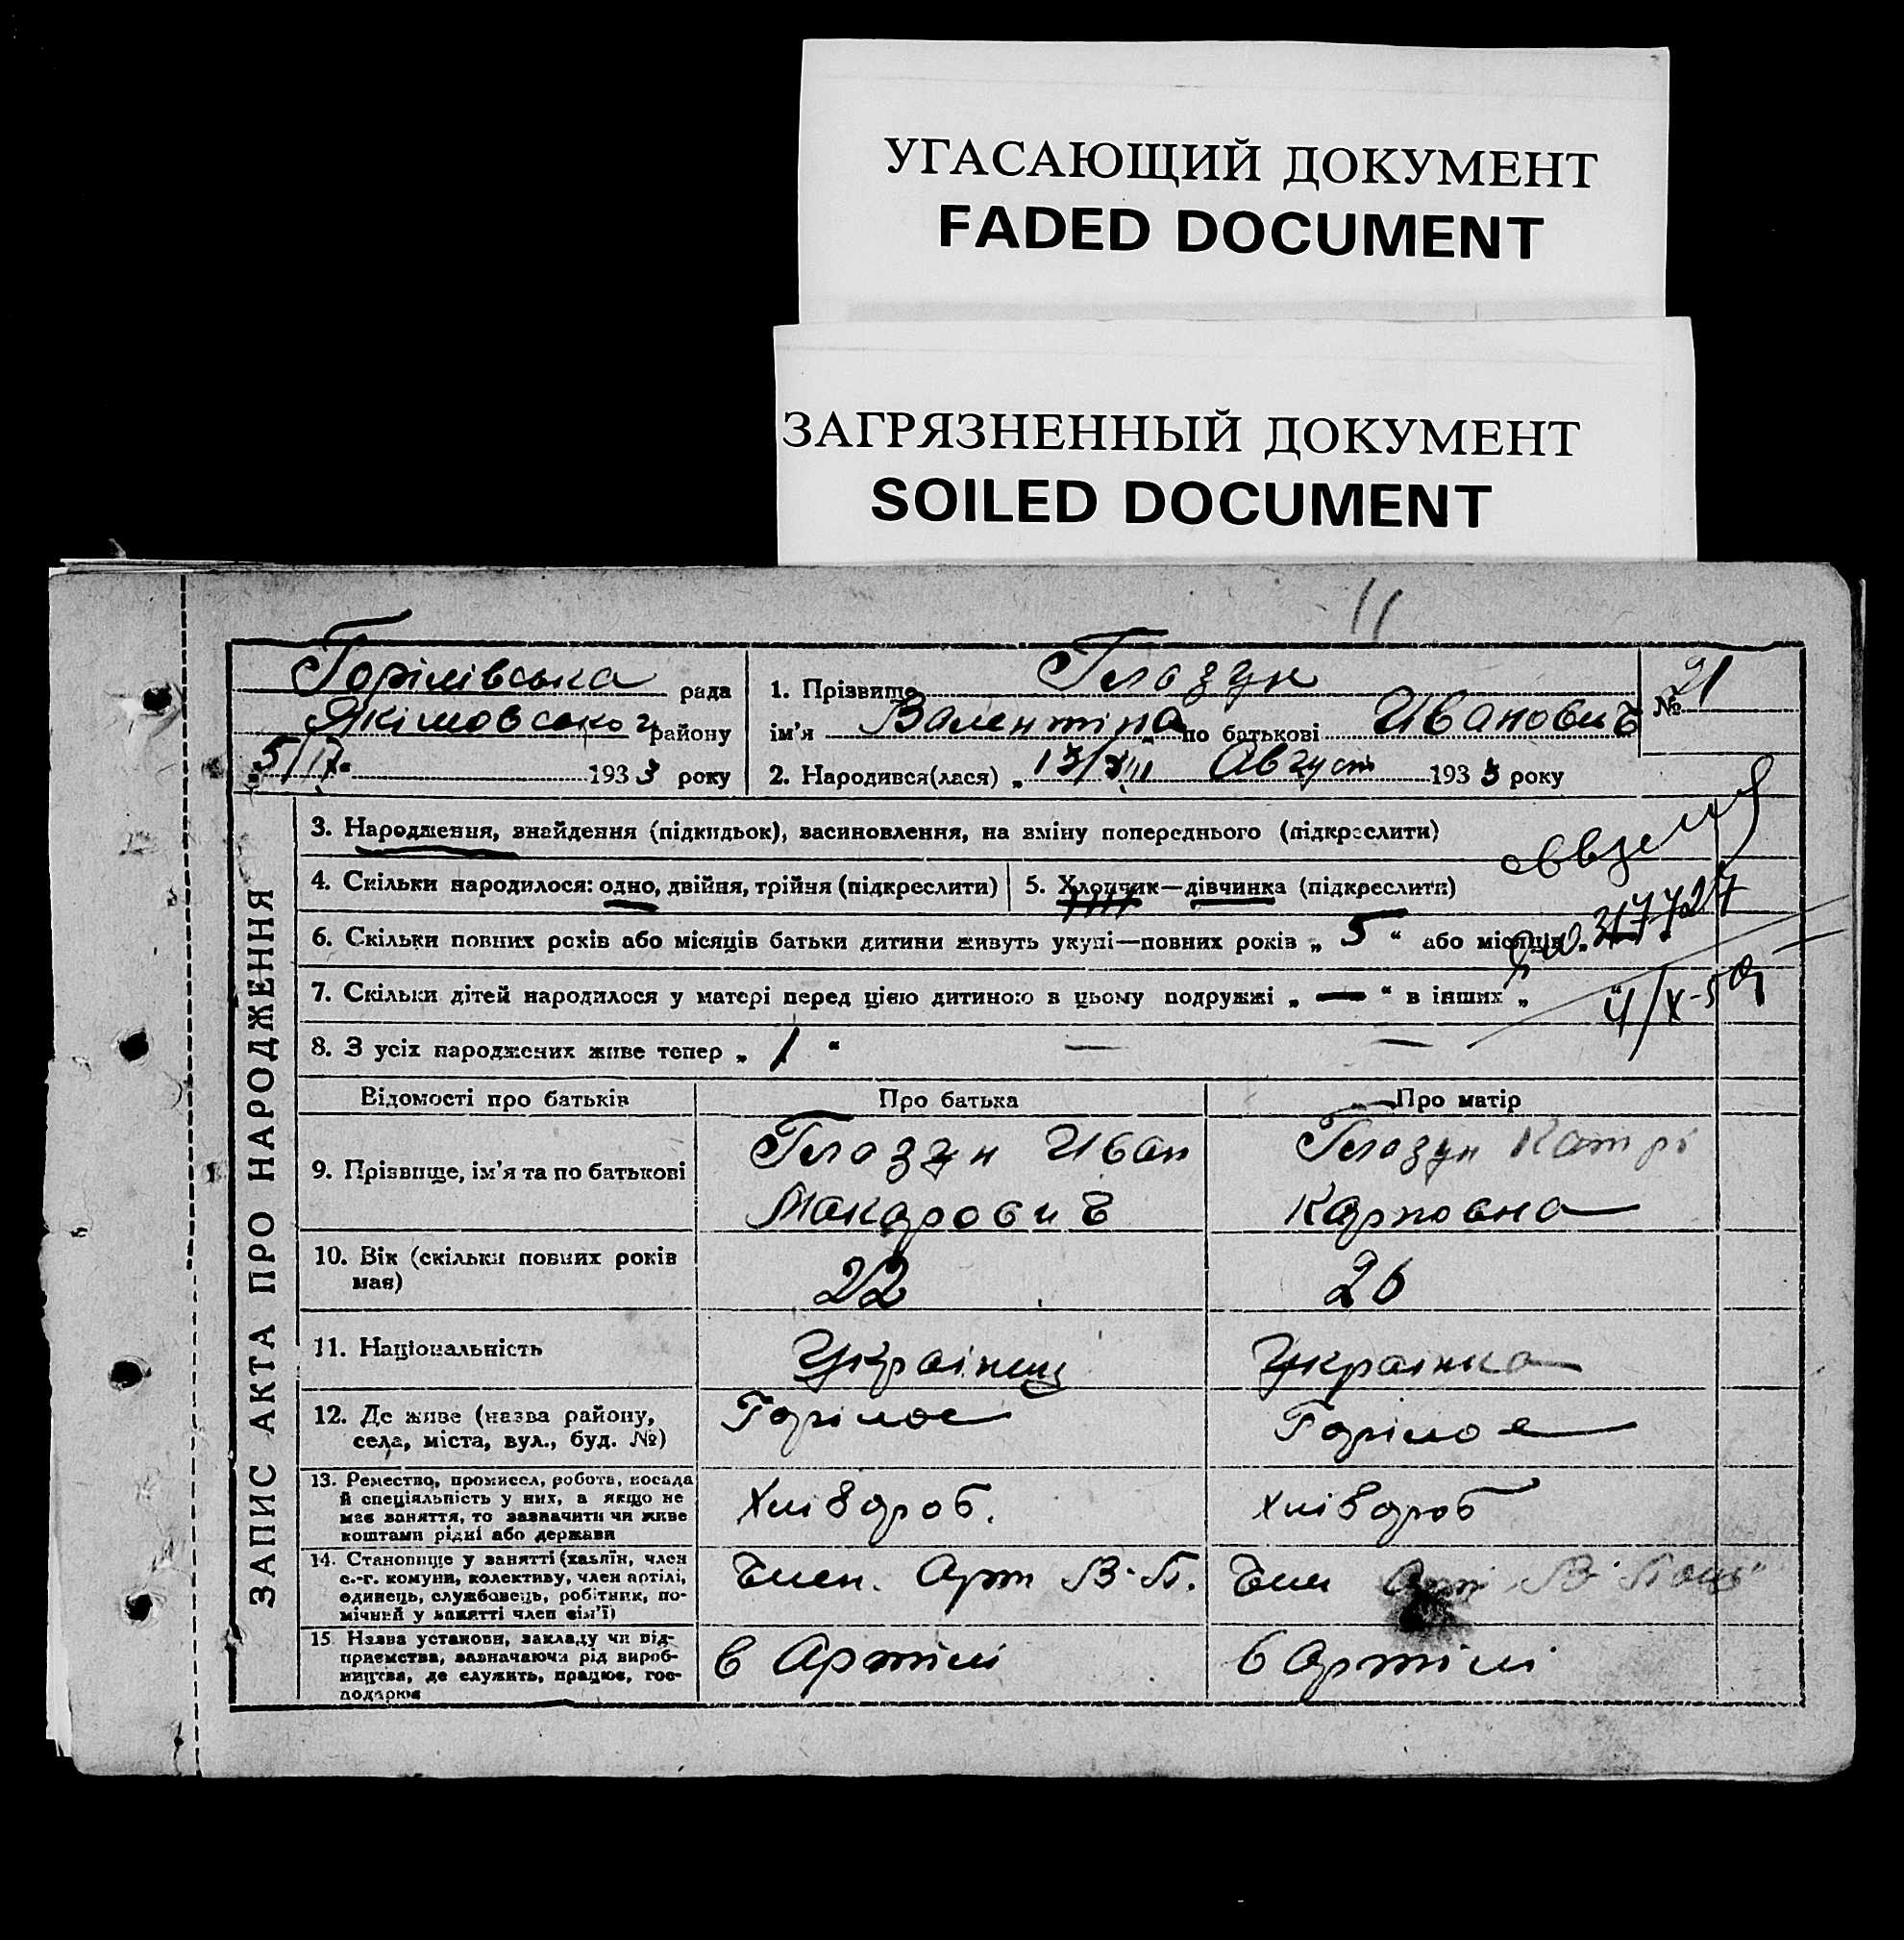 УГАСАЮЩИЙ ДОКУМЕНТ
FADED DOCUMENT
ЗАГРЯЗНЕННЫЙ ДОКУМЕНТ
SOILED DOCUMENT
11
Горілівська рада
Якімовського району
„5/IX“ 1933 року
1. Прізвище Глазун
ім'я Валентина по батькові Иванович
2. Народився(лася) „13/VIII Август 1933 року
№ 21
ЗАПИС АКТА ПРО НАРОДЖЕННЯ
3. Народження, знайдення (підкидьок), васиновлення, на зміну попереднього (підкреслити)
4. Скільки народилося: одно, двійня, трійня (підкреслити)
5. Хлопчик—дівчинка (підкреслити)
6. Скільки повних років або місяців батьки дитини живуть укупі—повних років „ 5 “ або місяців „
7. Скільки дітей народилося у матері перед цією дитиною в цьому подружжі „ — “ в інших „
8. З усіх народжених живе тепер „ 1 “ — —
Відомості про батьків
Про батька
Про матір
9. Прізвище, ім'я та по батькові
Глазун Иван
Макарович
Глазун Катрі
Карповна
10. Вік (скільки повних років має)
22
26
11. Національність
Українец
Українка
12. Де живе (назва району,
села, міста, вул., буд. №)
Горілое
Горілое
13. Ремество, промисел, робота, посада
й спеціяльність у них, а якщо не
має заняття, то зазначити чи живе
коштами рідні або держави
Хлібороб.
хлібороб
14. Становище у занятті (хазяїн, член
с.-г. комуни, колективу, член артілі,
одинець, службовець, робітник, по-
мічний у занятті член сім'ї)
Член. Арт В-П.
Член Арт В-
15. Назва установи, закладу чи під-
приємства, зазначаючи рід вироб-
ництва, де служить, працює, гос-
подарює
в Артілі
в артілі